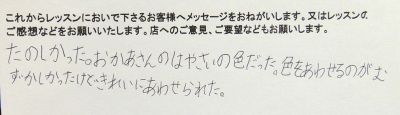 これからレッスンにおいで下さるお客様へメッセージをおねがいします。又はレッスンの
ご感想などをお願いいたします。店へのご意見、ご要望などもお願いします。
たのしかった。おかあさんのはやさいの色だった。色をあわせるのがむ
ずかしかったけどきれいにあわせられた。